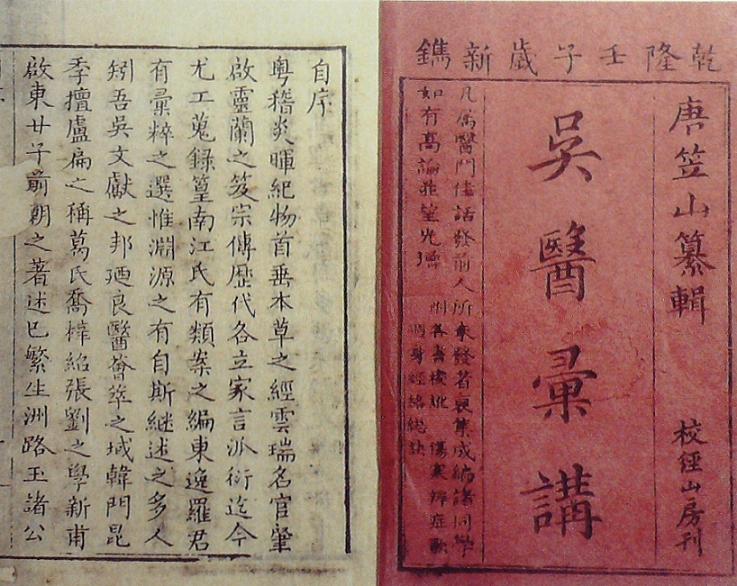 乾隆壬子歲新鐫
唐笠山纂輯 校經山房刊
吳醫彙講
凡屬醫門佳話發前人所未發者裒集成編諸同學
如有高論並望光增
傷寒辨症歌
經絡總訣
自序
粵稽炎暉紀物首垂本草之經雲瑞名官肇
啟靈蘭之笈宗傳歷代各立家言派衍迄今
尤工蒐錄篁南江氏有類案之編東逸羅君
有彙粹之選惟淵源之有自斯繼述之多人
矧吾吳文獻之邦廼良醫薈萃之域韓門昆
季擅盧扁之稱葛氏喬梓紹張劉之學新甫
啟東廿子前朝之著述已繁生洲路玉諸公